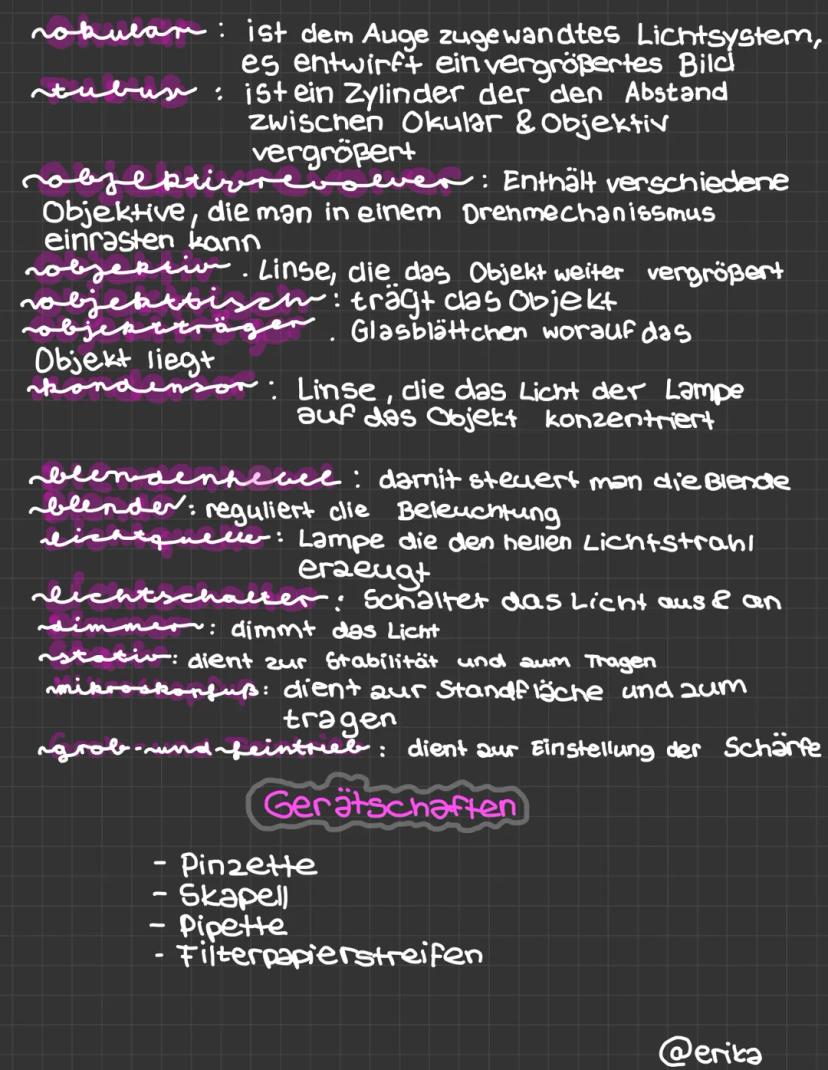 okular: ist dem Auge zugewandtes Lichtsystem,
es entwirft ein vergrößertes Bild
tubus: ist ein Zylinder der den Abstand
zwischen Okular & Objektiv
vergrößert
objektivrevolver: Enthält verschiedene
Objektive, die man in einem Drehmechanissmus
einrasten kann
objektiv. Linse, die das Objekt weiter vergrößert
objekttisch: trägt das Objekt
objektträger. Glasblättchen worauf das
Objekt liegt
kondensor: Linse, die das Licht der Lampe
auf das Objekt konzentriert
blendenhebel: damit steuert man die Blende
blende: reguliert die Beleuchtung
lichtquelle: Lampe die den hellen Lichtstrahl
erzeugt
lichtschalter: Schaltet das Licht aus & an
dimmer: dimmt das Licht
stativ: dient zur Stabilität und zum Tragen
mikroskopfuß: dient zur Standfläche und zum
tragen
grob-und feintrieb: dient zur Einstellung der Schärfe
Gerätschaften
- Pinzette
- Skapell
- Pipette
- Filterpapierstreifen
@erika